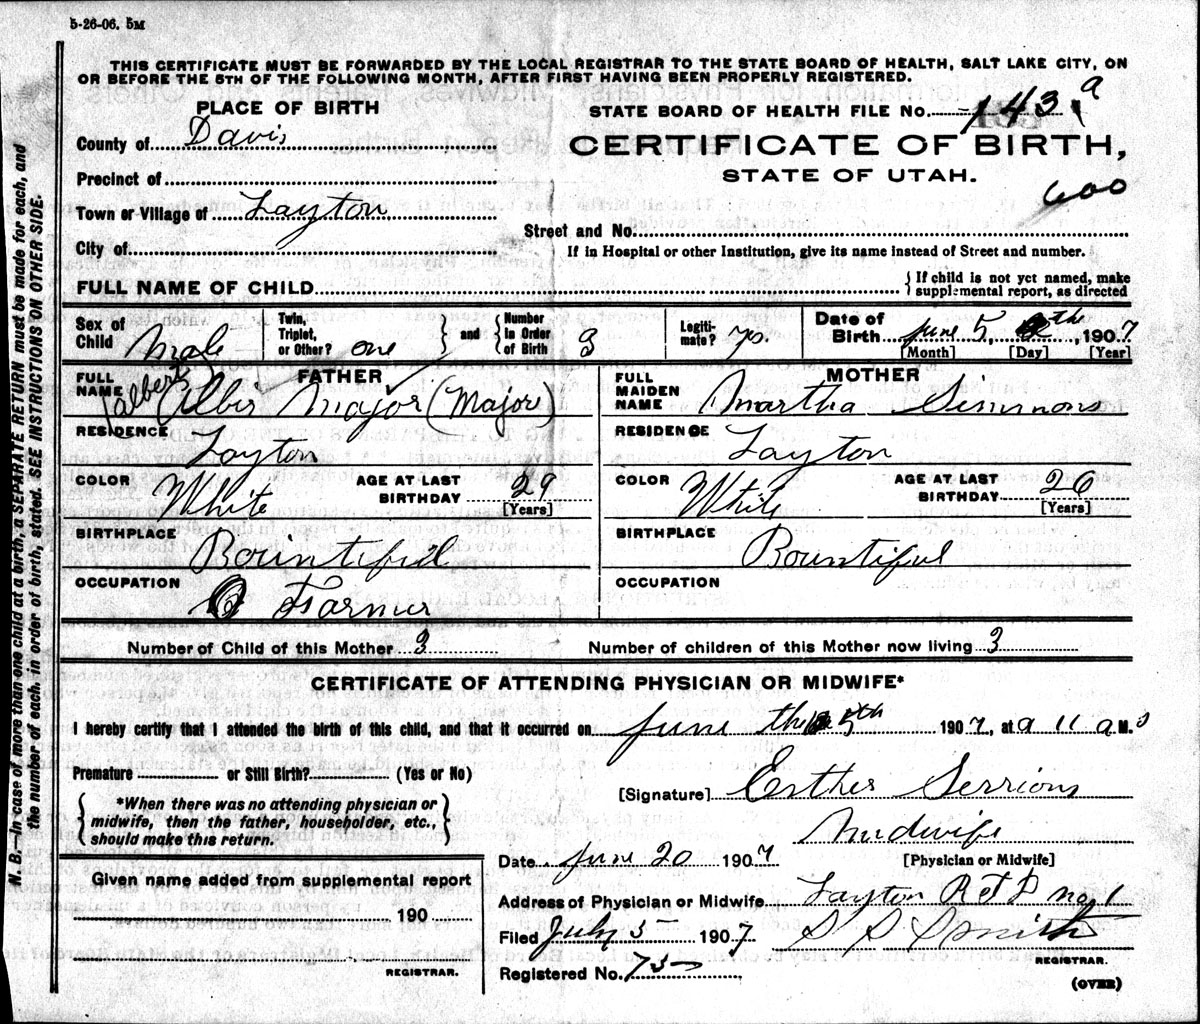 5-26-06. 5M
THIS CERTIFICATE MUST BE FORWARDED BY THE LOCAL REGISTRAR TO THE STATE BOARD OF HEALTH, SALT LAKE CITY, ON
OR BEFORE THE 5TH OF THE FOLLOWING MONTH, AFTER FIRST HAVING BEEN PROPERLY REGISTERED.
PLACE OF BIRTH
County of Davis
Precinct of
Town or Village of Layton
City of
STATE BOARD OF HEALTH FILE No. 143 a
CERTIFICATE OF BIRTH,
STATE OF UTAH.
600
Street and No.
If in Hospital or other Institution, give its name instead of Street and number.
FULL NAME OF CHILD
{ If child is not yet named, make
supplemental report, as directed
Sex of Child Male
Twin, Triplet, or Other? one } and { Number in Order of Birth 3
Legiti-mate? yes.
Date of Birth June 5, th, 1907
[Month] [Day] [Year]
FATHER
FULL NAME (Albert) Albir Major (Major)
RESIDENCE Layton
COLOR White AGE AT LAST BIRTHDAY 29 [Years]
BIRTHPLACE Bountiful
OCCUPATION Farmer
MOTHER
FULL MAIDEN NAME Martha Simmons
RESIDENCE Layton
COLOR White AGE AT LAST BIRTHDAY 26 [Years]
BIRTHPLACE Bountiful
OCCUPATION
Number of Child of this Mother 3 Number of children of this Mother now living 3
CERTIFICATE OF ATTENDING PHYSICIAN OR MIDWIFE*
I hereby certify that I attended the birth of this child, and that it occurred on June the 5th 1907, at 11 a M.
Premature or Still Birth? (Yes or No)
{ *When there was no attending physician or
midwife, then the father, householder, etc.,
should make this return. }
[Signature] Esther Serrions
Midwife
[Physician or Midwife]
Date June 20 1907
Address of Physician or Midwife Layton R F D no 1
Filed July 5 1907 S S Smith
REGISTRAR.
Registered No. 75
(OVER)
Given name added from supplemental report
190
REGISTRAR.
N. B.—In case of more than one child at a birth, a SEPARATE RETURN must be made for each, and
the number of each, in order of birth, stated. SEE INSTRUCTIONS ON OTHER SIDE.